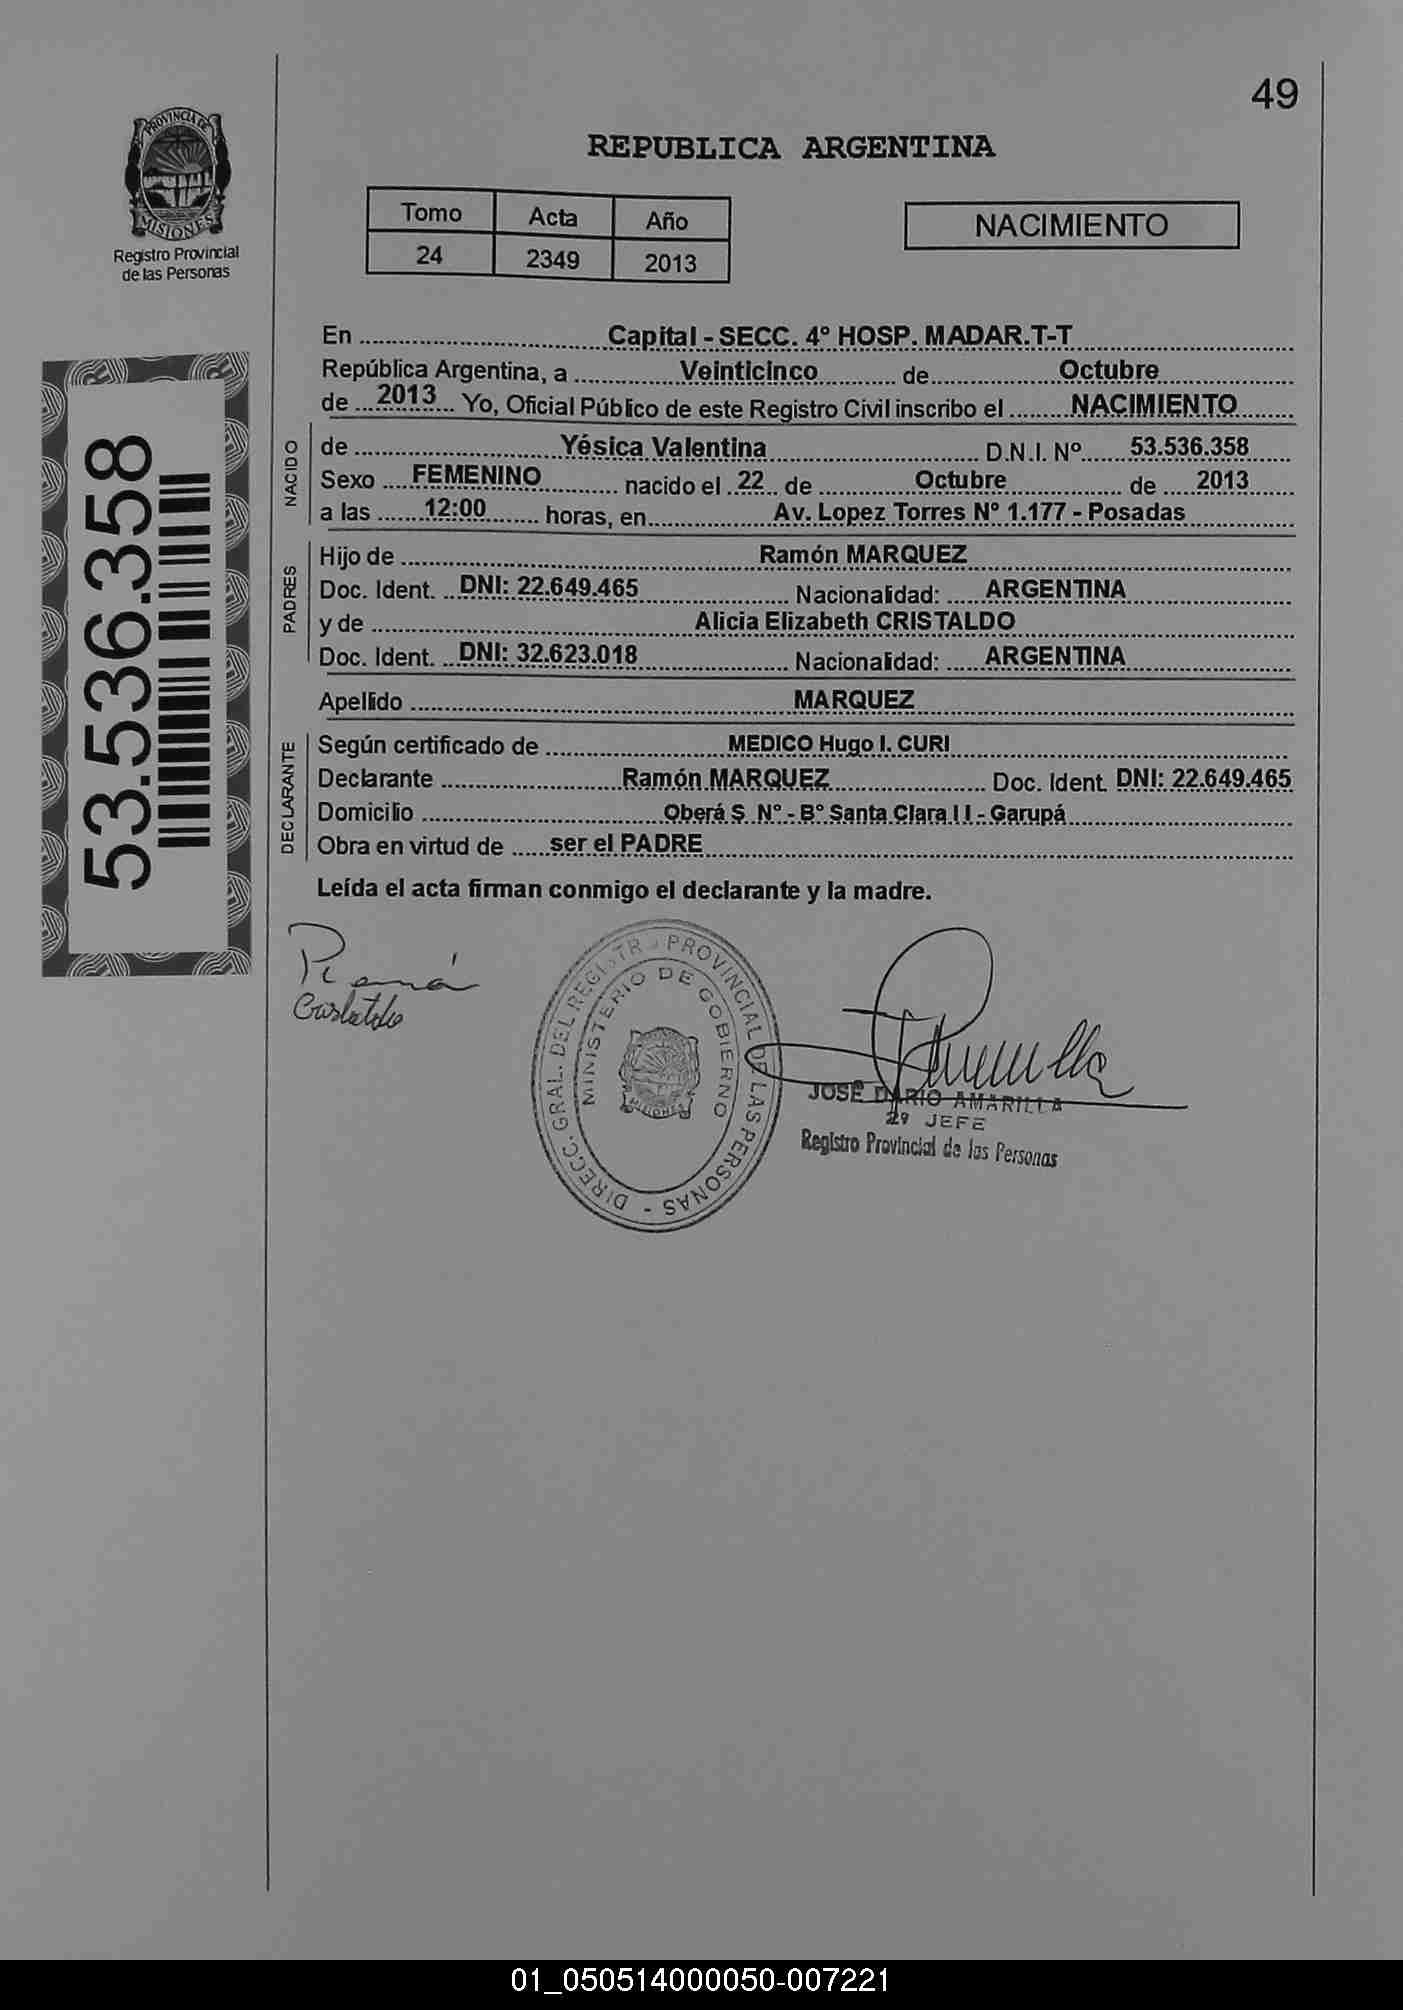 49
PROVINCIA DE
MISIONES
Registro Provincial
de las Personas
REPUBLICA ARGENTINA
Tomo Acta Año
24 2349 2013
NACIMIENTO
53.536.358
En Capital - SECC. 4º HOSP. MADAR.T-T
República Argentina, a Veinticinco de Octubre
de 2013 Yo, Oficial Público de este Registro Civil inscribo el NACIMIENTO
NACIDO
de Yésica Valentina D.N.I. Nº 53.536.358
Sexo FEMENINO nacido el 22 de Octubre de 2013
a las 12:00 horas, en Av. Lopez Torres Nº 1.177 - Posadas
PADRES
Hijo de Ramón MARQUEZ
Doc. Ident. DNI: 22.649.465 Nacionalidad: ARGENTINA
y de Alicia Elizabeth CRISTALDO
Doc. Ident. DNI: 32.623.018 Nacionalidad: ARGENTINA
Apellido MARQUEZ
DECLARANTE
Según certificado de MEDICO Hugo I. CURI
Declarante Ramón MARQUEZ Doc. Ident. DNI: 22.649.465
Domicilio Oberá S Nº - Bº Santa Clara I I - Garupá
Obra en virtud de ser el PADRE
Leída el acta firman conmigo el declarante y la madre.
Cristaldo
DIRECC. GRAL. DEL REGISTRO PROVINCIAL DE LAS PERSONAS -
MINISTERIO DE GOBIERNO
MISIONES
JOSÉ DARIO AMARILLA
2º JEFE
Registro Provincial de las Personas
01_050514000050-007221